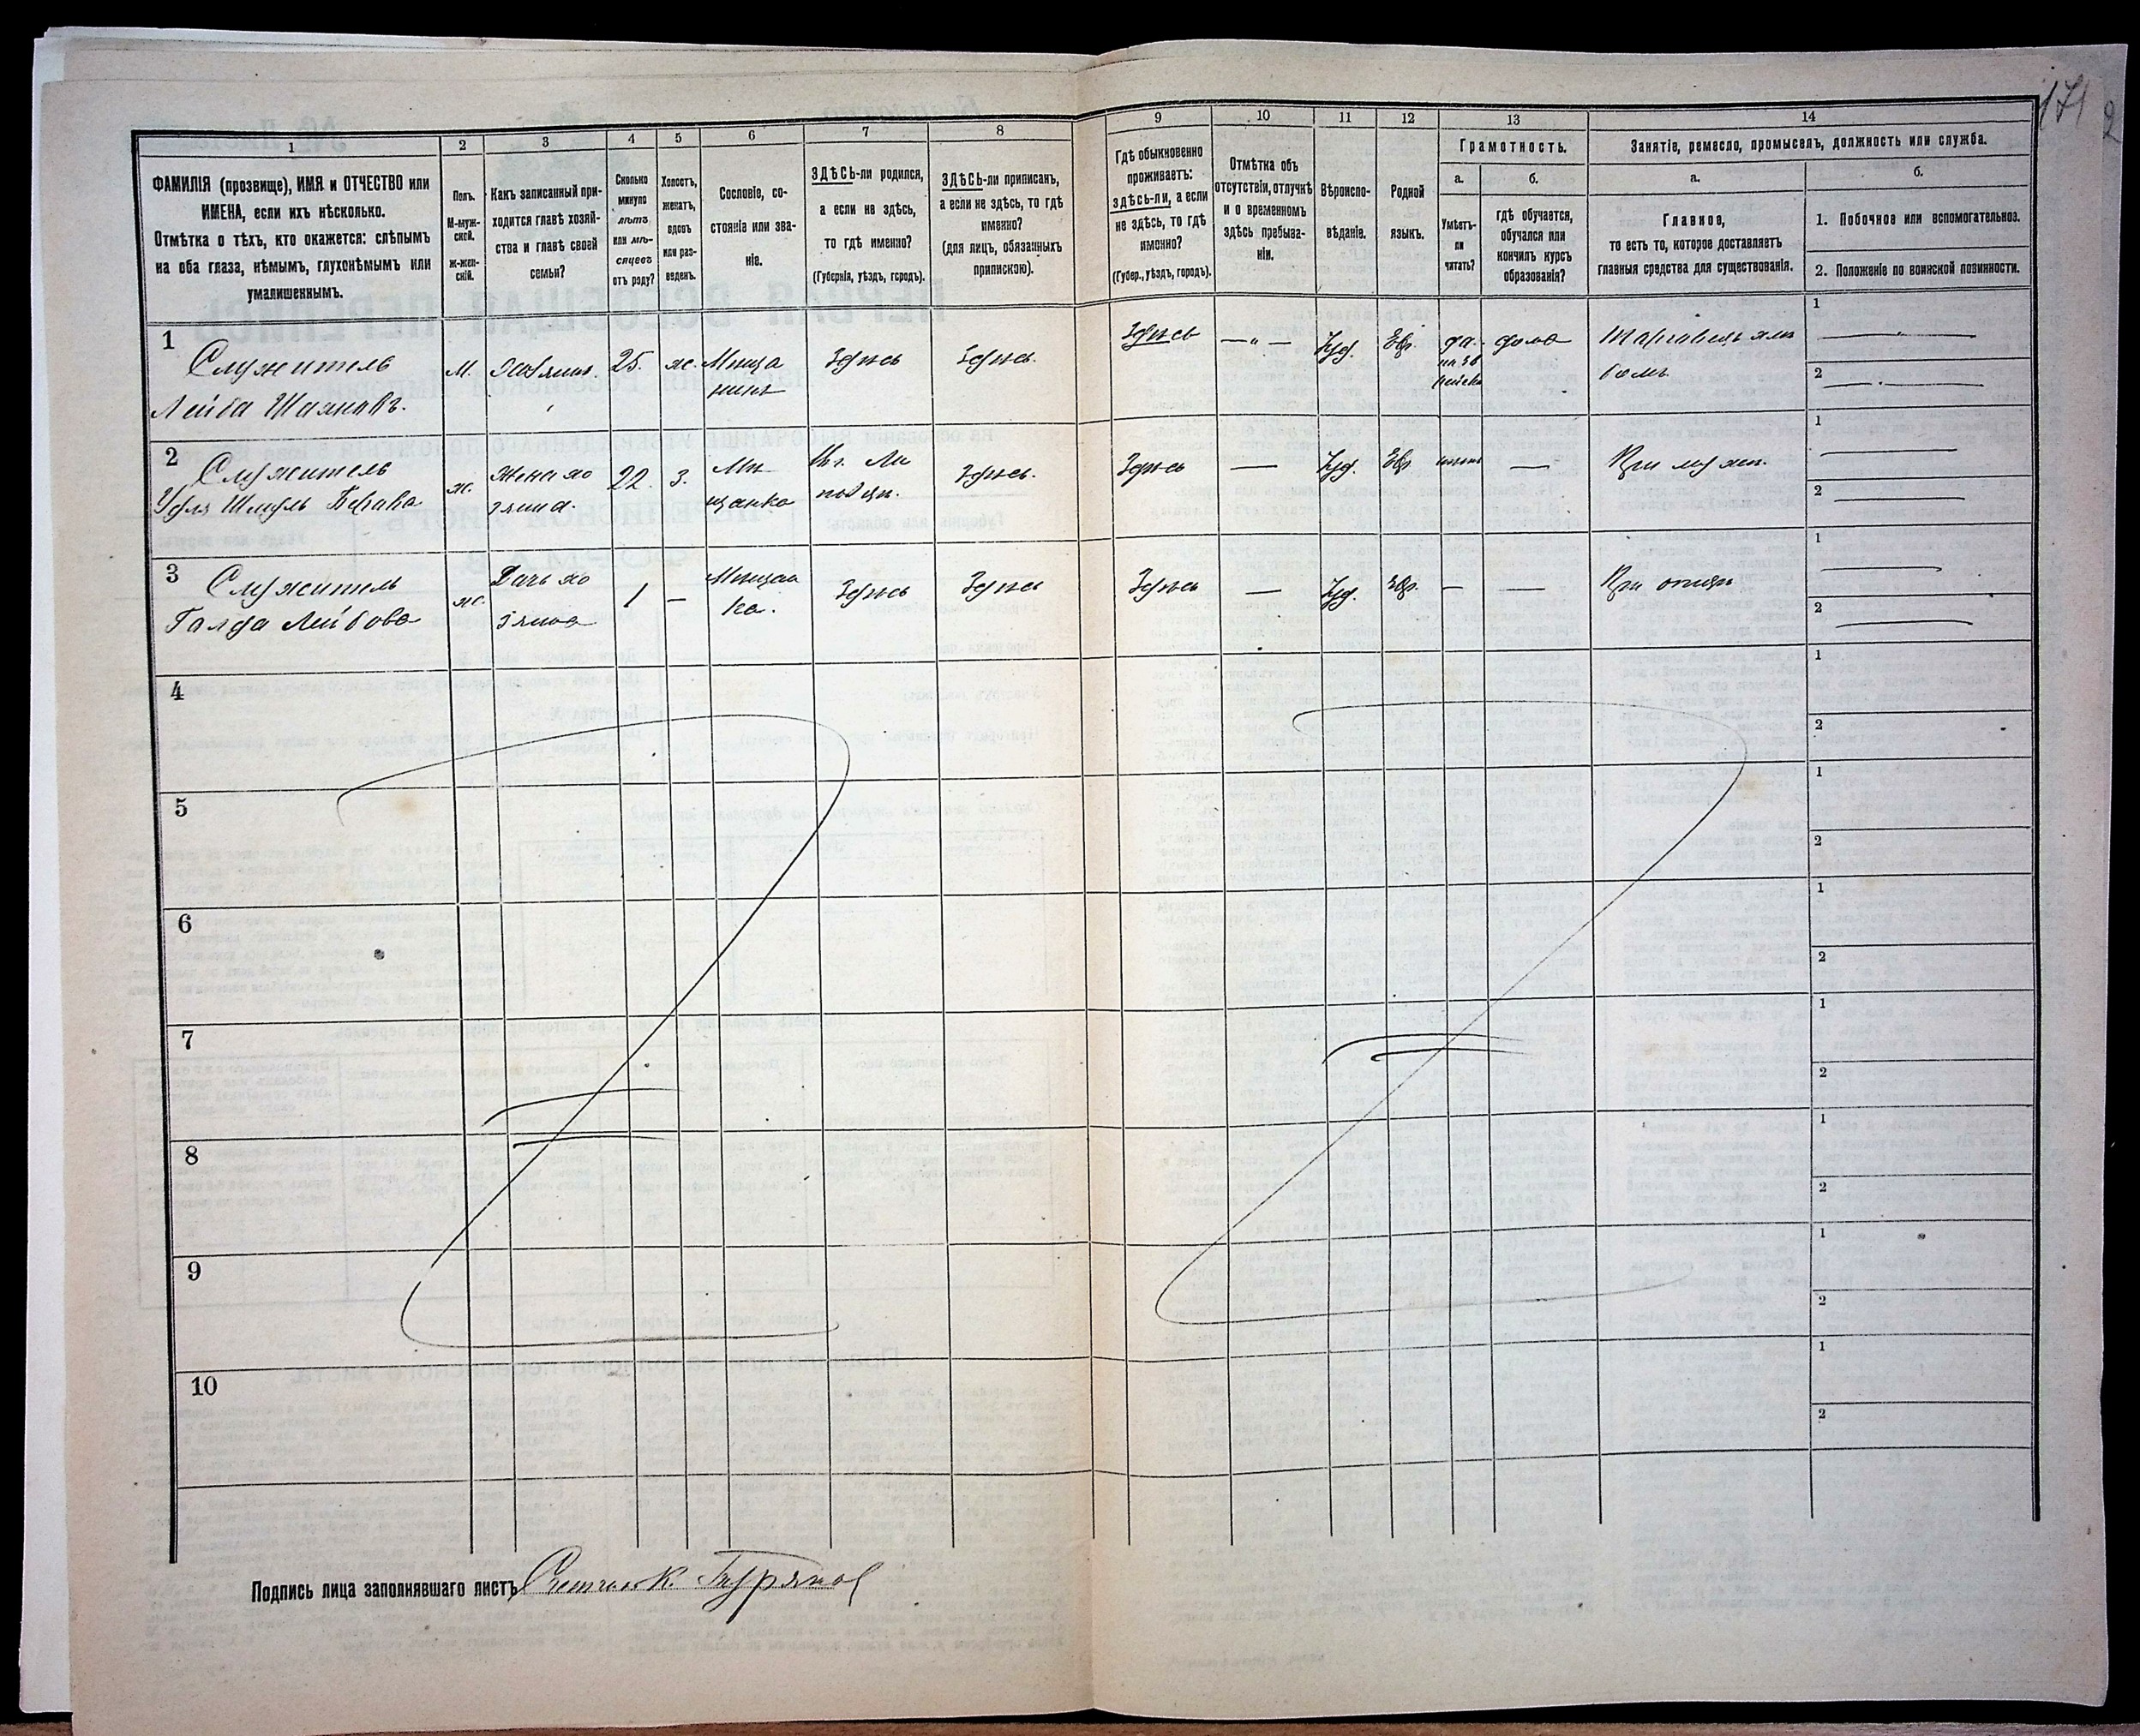 171
2
1
ФАМИЛІЯ (прозвище), ИМЯ и ОТЧЕСТВО или
ИМЕНА, если ихъ нѣсколько.
Отмѣтка о тѣхъ, кто окажется: слѣпымъ
на оба глаза, нѣмымъ, глухонѣмымъ или
умалишеннымъ.
2
Полъ.
М-муж-
ской.
Ж-жен-
скій.
3
Какъ записанный при-
ходится главѣ хозяй-
ства и главѣ своей
семьи?
4
Сколько
минуло
лѣтъ
или мѣ-
сяцевъ
отъ роду?
5
Холостъ,
женатъ,
вдовъ
или раз-
веденъ.
6
Сословіе, со-
стояніе или зва-
ніе.
7
ЗДѢСЬ-ли родился,
а если не здѣсь,
то гдѣ именно?
(Губернія, уѣздъ, городъ).
8
ЗДѢСЬ-ли приписанъ,
а если не здѣсь, то гдѣ
именно?
(для лицъ, обязанныхъ
припискою).
9
Гдѣ обыкновенно
проживаетъ:
здѣсь-ли, а если
не здѣсь, то гдѣ
именно?
(Губер., уѣздъ, городъ).
10
Отмѣтка объ
отсутствіи, отлучкѣ
и о временномъ
здѣсь пребыва-
ніи.
11
Вѣроиспо-
вѣданіе.
12
Родной
языкъ.
13
Грамотность.
а.
Умѣетъ-
ли
читать?
б.
гдѣ обучается,
обучался или
кончилъ курсъ
образованія?
14
Занятіе, ремесло, промыселъ, должность или служба.
а.
Главное,
то есть то, которое доставляетъ
главныя средства для существованія.
б.
1. Побочное или вспомогательное.
2. Положеніе по воинской повинности.
1
Служитель
Лейба
М.
Хозяинъ
25.
ж.
Мѣща
нинъ
Здѣсь
Здѣсь.
Здѣсь
—"—
Іуд.
Евр.
да.
дома
1
2
2
Служитель
ж.
Жена хо
зяина.
22.
з.
Мѣ
щанка
Здѣсь.
Здѣсь
—
Іуд.
Евр
—
При мужѣ.
1
2
3
Служитель
Лейбова
ж.
Дочь хо
зяина
1
—
Мѣщан
ка.
Здѣсь
Здѣсь
Здѣсь
—
Іуд.
Евр.
—
—
При отцѣ
1
2
4
1
2
5
1
2
6
1
2
7
1
2
8
1
2
9
1
2
10
1
2
Подпись лица заполнявшаго листъ Счетчик